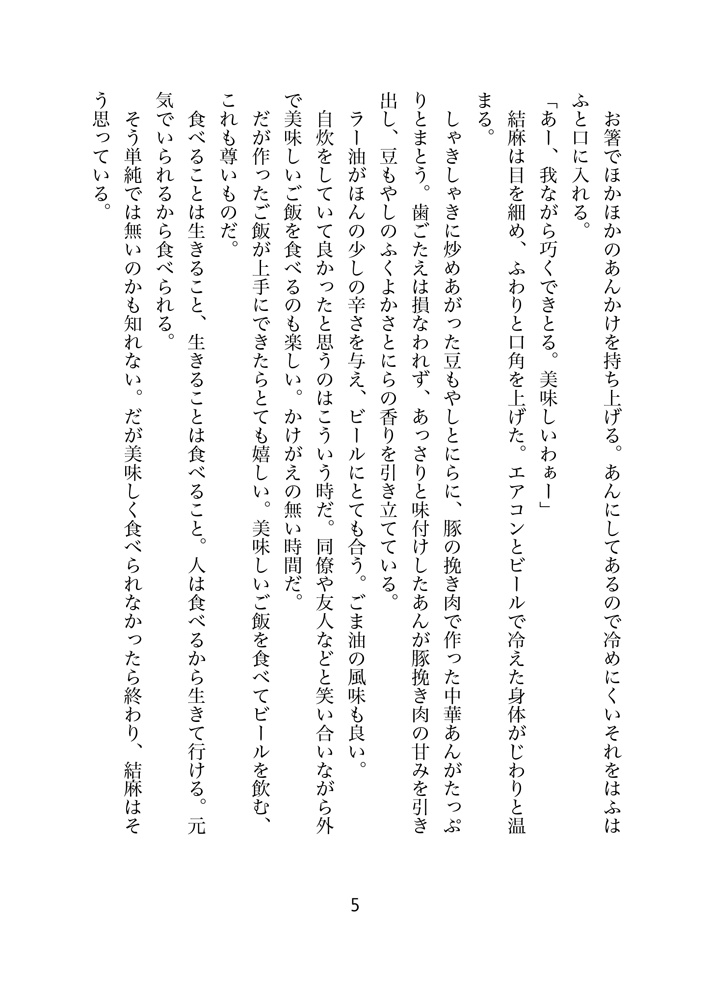 お箸でほかほかのあんかけを持ち上げる。あんにしてあるので冷めにくいそれをはふは
ふと口に入れる。
「あー、我ながら巧くできとる。美味しいわぁー」
　結麻は目を細め、ふわりと口角を上げた。エアコンとビールで冷えた身体がじわりと温
まる。
　しゃきしゃきに炒めあがった豆もやしとにらに、豚の挽き肉で作った中華あんがたっぷ
りとまとう。歯ごたえは損なわれず、あっさりと味付けしたあんが豚挽き肉の甘みを引き
出し、豆もやしのふくよかさとにらの香りを引き立てている。
　ラー油がほんの少しの辛さを与え、ビールにとても合う。ごま油の風味も良い。
　自炊をしていて良かったと思うのはこういう時だ。同僚や友人などと笑い合いながら外
で美味しいご飯を食べるのも楽しい。かけがえの無い時間だ。
　だが作ったご飯が上手にできたらとても嬉しい。美味しいご飯を食べてビールを飲む、
これも尊いものだ。
　食べることは生きること、生きることは食べること。人は食べるから生きて行ける。元
気でいられるから食べられる。
　そう単純では無いのかも知れない。だが美味しく食べられなかったら終わり、結麻はそ
う思っている。
5